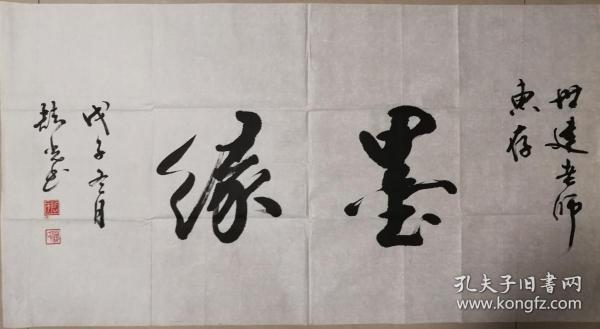 世建老师
惠存
墨缘
戊子冬月
孔夫子旧书网
www.kongfz.com